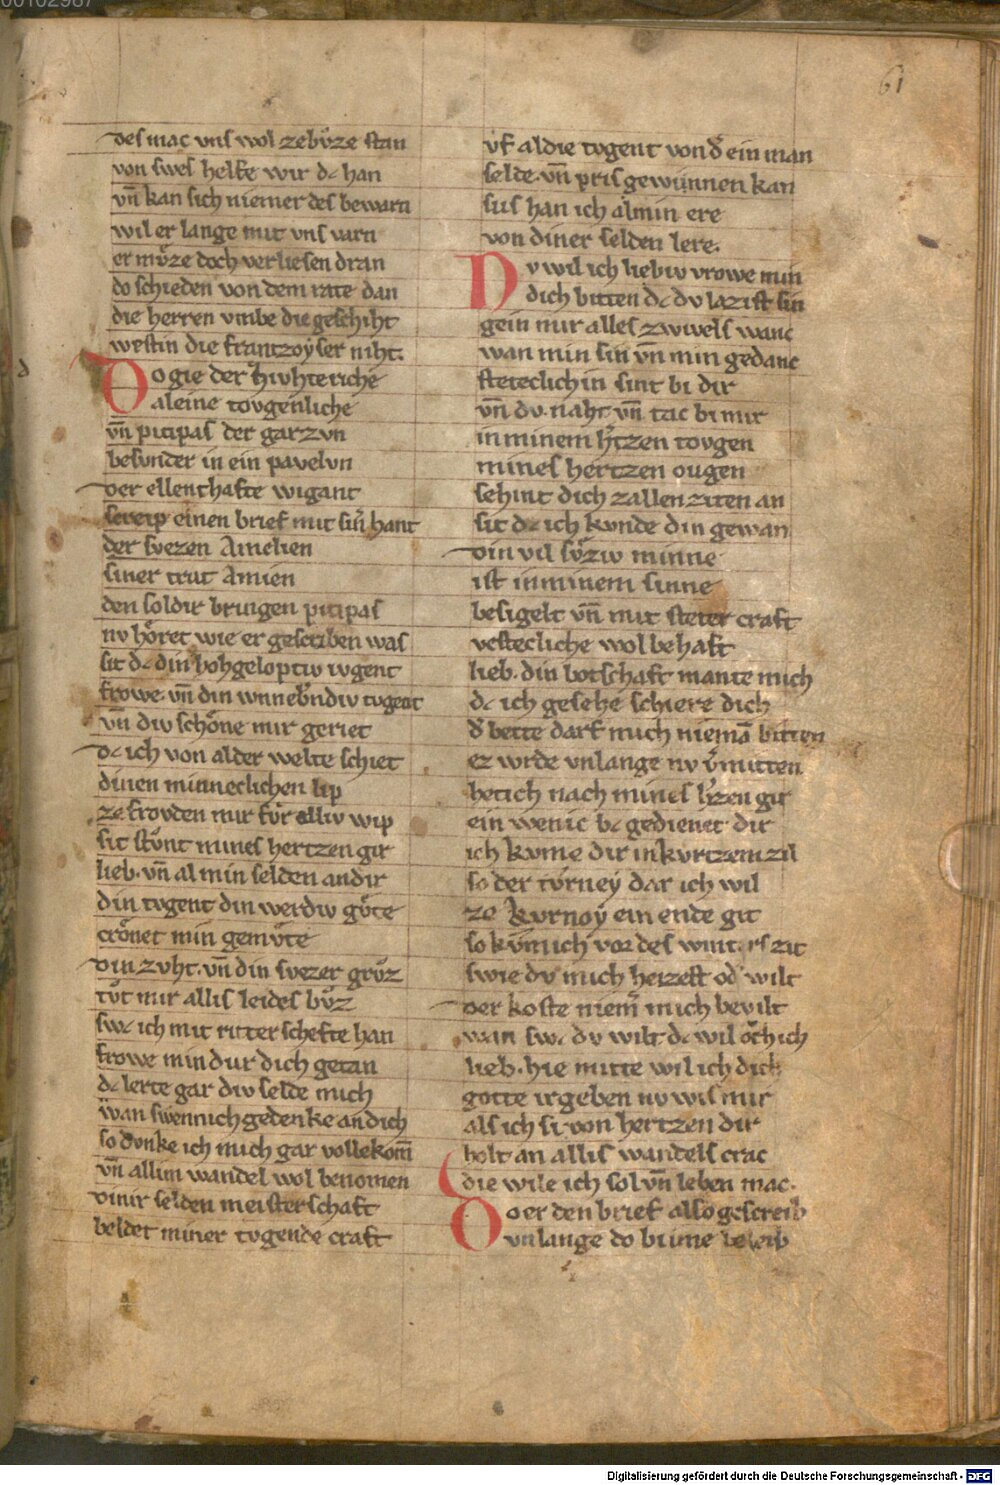 61
des mac uns wol zebuͦze stan
von swes helfe wir dc han
vn̄ kan sich niemer des bewarn
wil er lange mit uns varn
er muͤze doch verliesen dran
do schieden von dem rate dan
die herren umbe die geschiht
westin die frantzoyser niht.
Do gie der zvhteriche
aleine tovgenliche
vn̄ pitipas der garzvn
besvnder in ein pavelvn
der ellenthafte wigant
screip einen brief mit sinr̄ hant
der svezen Amelien
siner trut Amien
den soldir bringen pitipas
nv hoͤret wie er gescriben was
sit dc din hohgeloptiv ivgent
frowe. vn̄ din wnnebrndiv tvgent
vn̄ div schoͤne mir geriet
dc ich von alder welte schiet
dinen minneclichen lip
ze frovden mir fvͤr elliv wip
sit stvͦnt mines hertzen gir
lieb. vn̄ al min selden an dir
din tvgent din werdiv gvͤte
croͤnet min gemvͤte
din zvht. vn̄ din svezer grvͦz
tvͦt mir allis leides bvͦz
swc ich mit ritterschefte han
frowe min dur dich getan
dc lerte gar div selde mich
wan swennich gedenke an dich
so dvnke ich mich gar vollekom̄
vn̄ allim wandel wol benomen
dinir selden meisterschaft
beldet miner tvgende craft
vf al die tvgent von d̄ ein man
selde. vn̄ pris gewinnen kan
sus han ich al min ere
von diner selden lere.
Nv wil ich liebiv vrowe min
dich bitten dc dv lazist sin
gein mir alles zwivels wanc
wan min sin vn̄ min gedanc
steteclich in sint bi dir
vn̄ dv naht vn̄ tac bi mir
in minem h̄tzen tovgen
mines hertzen ougen
sehint dich zallen ziten an
sit dc ich kvnde din gewan
din vil svͤziv minne
ist in minem sinne
besigelt vn̄ mit steter craft
vestecliche wol behaft
lieb. din botschaft mante mich
dc ich gesehe schiere dich
d̄ bette darf mich nieman̄ bitten
ez wrde vnlange nv v̄mitten
het ich nach mines h̄zen gir
ein wenic bc gedienet dir
ich kvme dir in kvrtzem zil
so der tvrney dar ich wil
ze kvrnoy ein ende git
so kvm ich vor des winters zit
swie dv mich heizest od̄ wilt
der koste niem̄ mich bevilt
wan swc dv wilt dc wil oͮch ich
lieb. hie mitte wil ich dich
gotte irgeben nv wis mir
als ich si von hertzen dir
holt an allis wandels crac
die wile ich sol vn̄ leben mac.
Do er den brief also gescreib
vnlange do bi ime beleib
Digitalisierung gefördert durch die Deutsche Forschungsgemeinschaft - DFG